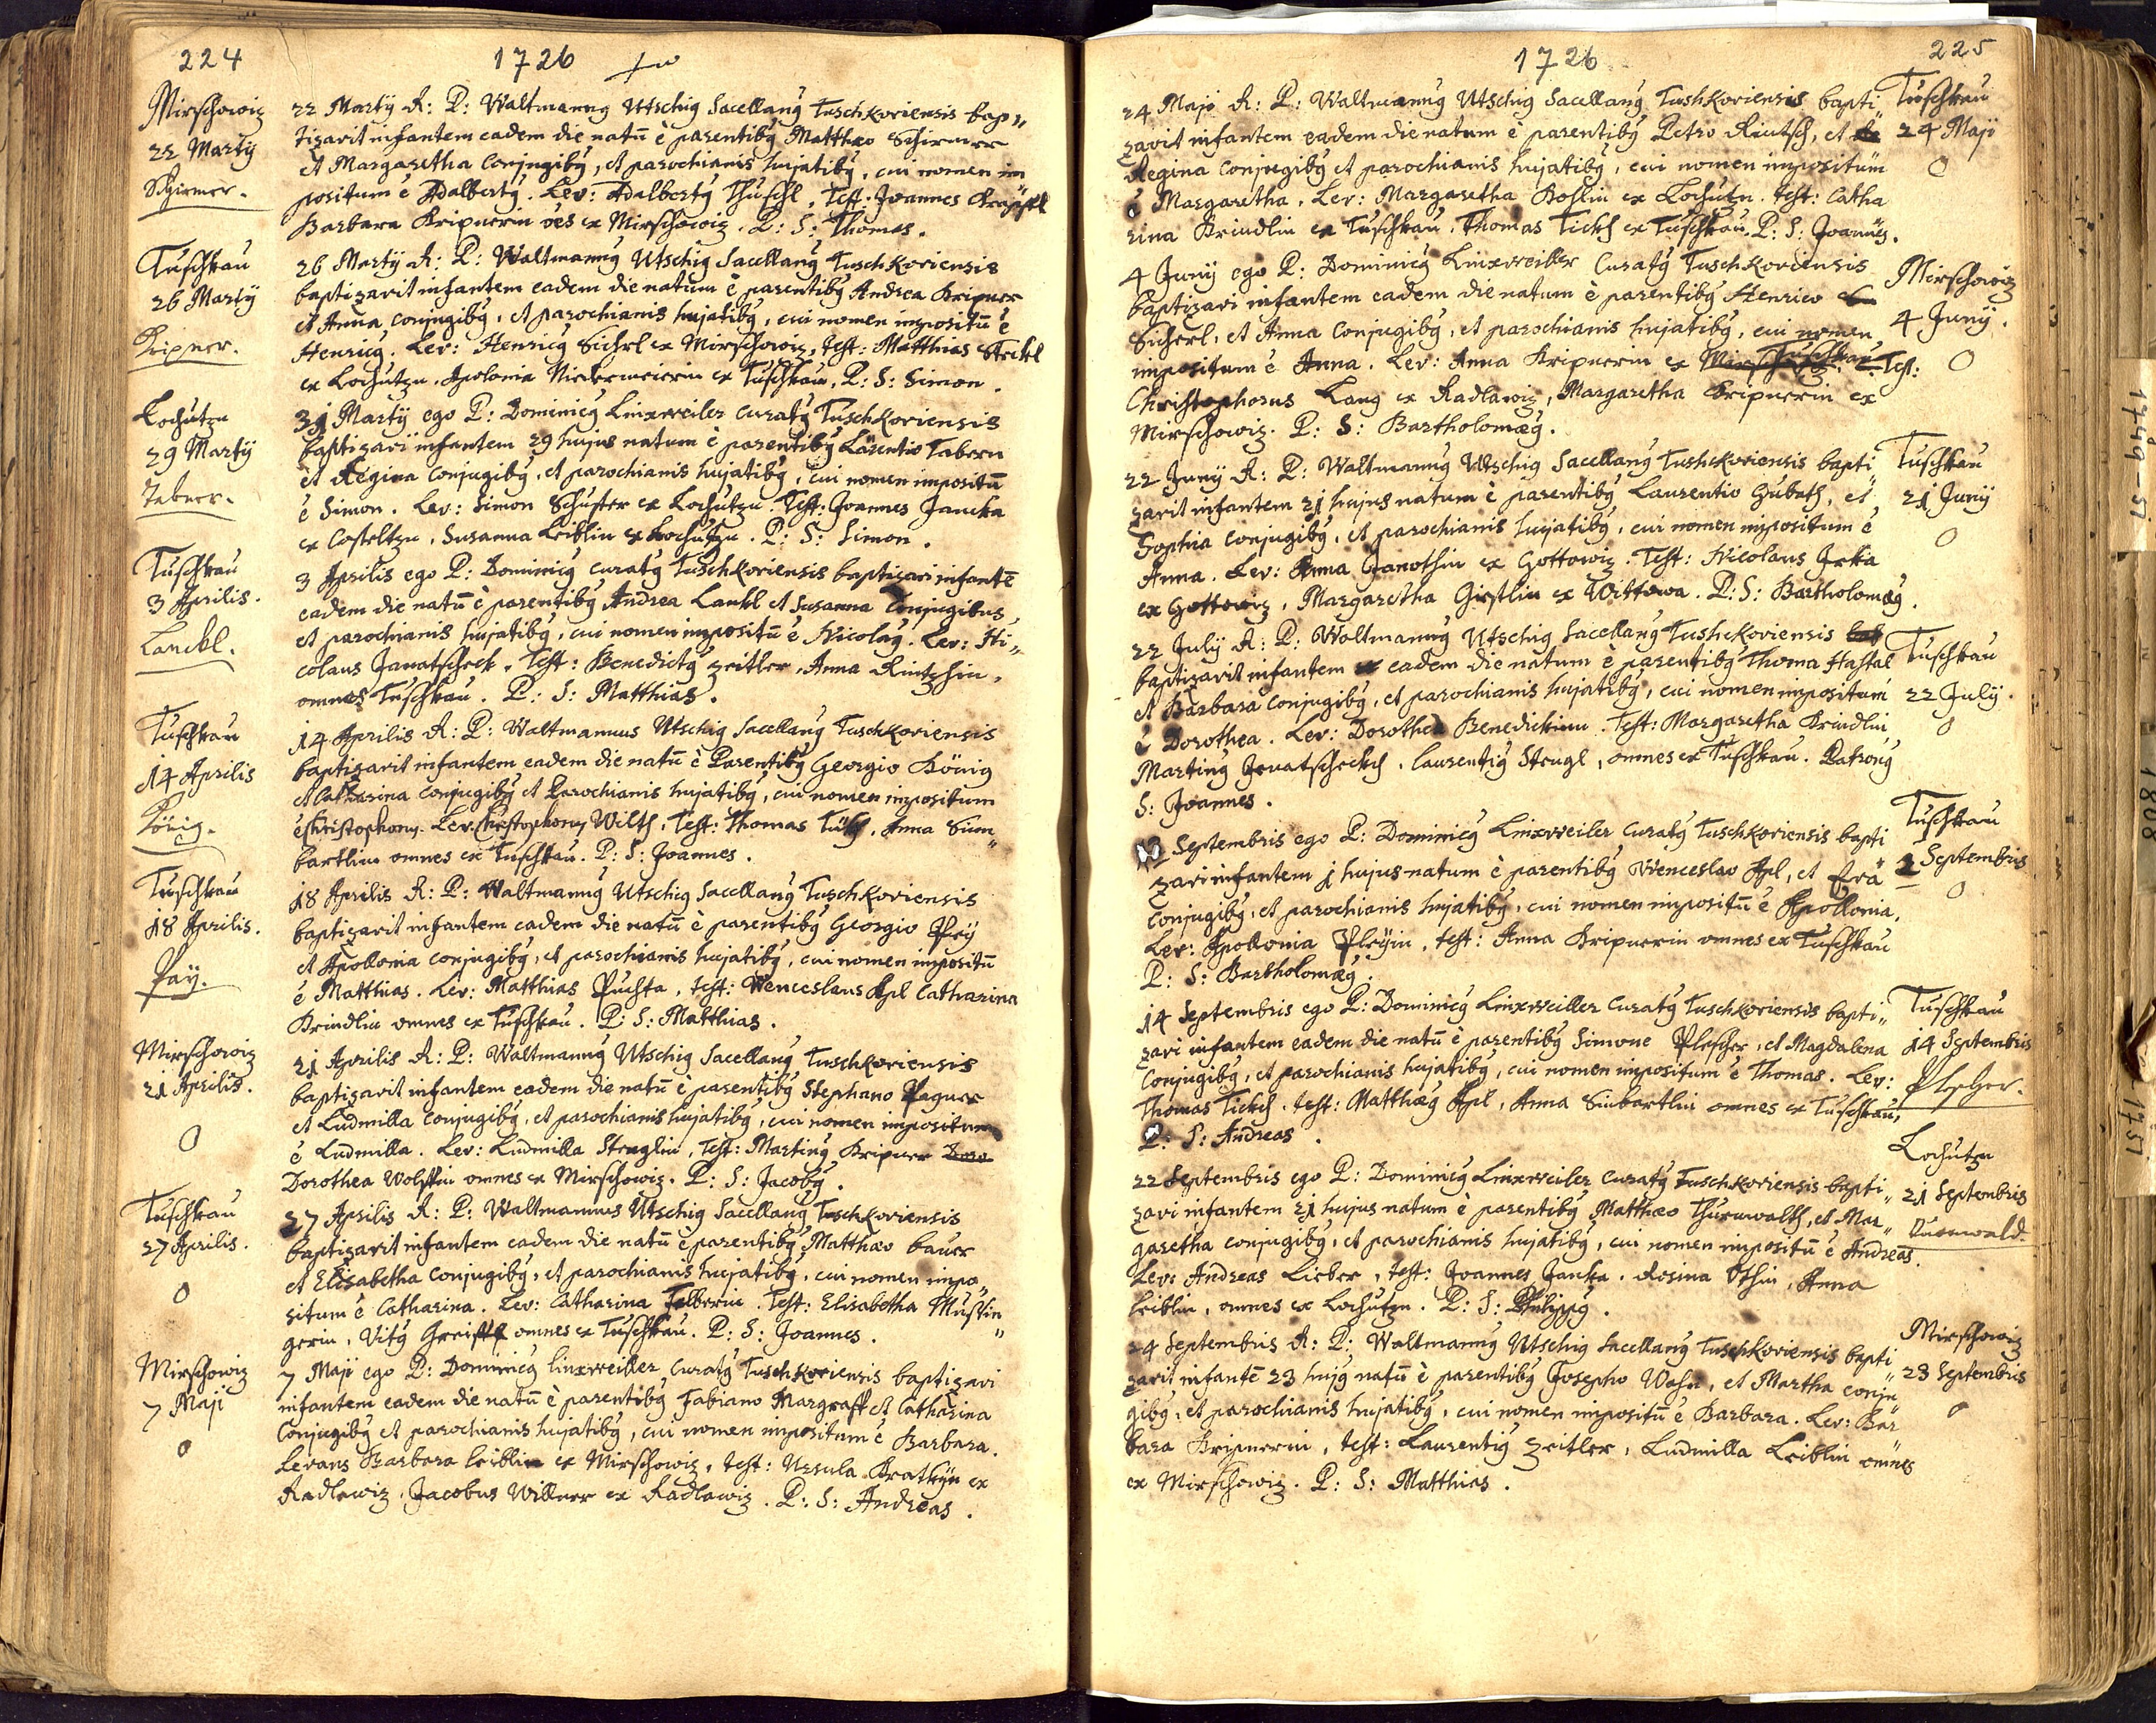 224
1726
Mirschowiz
22 Martÿ
Schirmer.
22 Martÿ R: P: Waltmannꝰ Utschig Sacellanꝰ Tuschkoviensis bap„
tizavit infantem eadem die natū è parentibꝰ Matthæo Schirmer
et Margaretha Conjugibꝰ, et parochianis hujatibꝰ, cui nomen im
positum ē Adalbertꝰ. Lev: Adalbertꝰ Thuschl, Test: Joannes
Barbara Kripnerin oēs ex Mirschowiz. P: S: Thomas.
Tuschkau
26 Martÿ
Kripner.
26 Martÿ R: P: Waltmannꝰ Utschig Sacellanꝰ Tuschkoviensis
baptizavit infantem eadem die natum è parentibꝰ Andrea Kripner
et Anna conjugibꝰ, et parochianis hujatibꝰ, cui nomen impositū ē
Henricꝰ. Lev: Henricꝰ Sicherl ex Mirschowiz, Test: Matthias Steckl
ex Lochutzn. Apolonia Niedermeierin ex Tuschkau. P: S: Simon.
Lochutzn
29 Martÿ
Taberer.
31 Martÿ ego P: Dominicꝰ Linxweiler Curatꝰ Tuschkoviensis
baptizavi infantem 29 hujus natum è parentibꝰ Laurentio Tabern
et Regina Conjugibꝰ, et parochianis hujatibꝰ, cui nomen impositū
ē Simon. Lev: Simon Schuster ex Lochutzn. Test: Joannes Jancka
ex Costeltzn, Susanna Leiblin ex Lochutzn. P: S: Simon.
Tuschkau
3 Aprilis.
Lanckl.
3 Aprilis ego P: Dominicꝰ Curatꝰ Tuschkoviensis baptizavi infantē
eadem die natū è parentibꝰ Andrea Lankl et Susanna Conjugibus,
et parochianis hujatibꝰ, cui nomen impositū ē Nicolaꝰ. Lev: Ni„
colaus Janatscheck, Test: Benedictꝰ Zeitler, Anna Rintzhin,
omnes Tuschkau. P: S: Matthias.
Tuschkau
14 Aprilis
König.
14 Aprilis R: P: Waltmannus Utschig Sacellanꝰ Tuschkoviensis
baptizavit infantem eadem die natū è Parentibꝰ Georgio König
et Catharina Conjugibꝰ et Parochianis hujatibꝰ, cui nomen impositum
ē Christophorꝰ. Lev: Christophorꝰ Wilth, Test: Thomas, Anna Sim„
bartlin omnes ex Tuschkau. P: S: Joannes.
Tuschkau
18 Aprilis.
Paÿ.
18 Aprilis R: P: Waltmannꝰ Utschig Sacellanꝰ Tuschkoviensis
baptizavit infantem eadem die natū è parentibꝰ Georgio Pleÿ
et Apollonia Conjugibꝰ, et parochianis hujatibꝰ, cui nomen impositū
ē Matthias. Lev: Matthias Puchta, Test: Wenceslaus Apl Catharina
Krindlin omnes ex Tuschkau. P: S: Matthias.
Mirschowiz
21 Aprilis.
O
21 Aprilis R: P: Waltmannꝰ Utschig Sacellanꝰ Tuschkoviensis
baptizavit infantem eadem die natū è parentibꝰ Stephano Pagner
et Ludmilla Conjugibꝰ, et parochianis hujatibꝰ, cui nomen impositum
ē Ludmilla. Lev: Ludmilla Stenglin, Test: Martinꝰ Kripner Doro
Dorothea Wolffin omnes ex Mirschowiz. P: S: Jacobꝰ.
Tuschkau
27 Aprilis.
O
27 Aprilis R: P: Waltmannus Utschig Sacellanꝰ Tuschkoviensis
baptizavit infantem eadem die natū è parentibꝰ Matthæo Bauer
et Elisabetha Conjugibꝰ, et parochianis hujatibꝰ, cui nomen impo„
situm ē Catharina. Lev: Catharina Felberin. Test: Elisabetha Mußin„
gerin, Vitꝰ omnes ex Tuschkau. P: S: Joannes.
Mirschowiz
7 Maji
O
7 Maji ego P: Dominicꝰ Linxweiller Curatꝰ Tuschkoviensis baptizavi
infantem eadem die natū è parentibꝰ Fabiano Margraff et Catharina
Conjugibꝰ et parochianis hujatibꝰ, cui nomen impositum ē Barbara.
Levans Barbara Leiblin ex Mirschowiz, Test: Ursula ex
Radlowiz. Jacobus Willner ex Radlowiz. P: S: Andreas.
1726
225
24 Maji R: P: Waltmannꝰ Utschig Sacellanꝰ Tushkoviensis bapti„
zavit infantem eadem die natum è parentibꝰ Petro Rintsch, et
Regina Conjugibꝰ et parochianis hujatibꝰ, cui nomen impositum
ē Margaretha. Lev: Margaretha Koslin ex Lochutzn. Test: Catha
rina Krindlin ex Tuschkau, Thomas Tickh ex Tuschkau. P: S: Joannes.
Tuschkau
24 Maji
O
4 Junÿ ego P: Dominicꝰ Linxweiller Curatꝰ Tuschkoviensis
baptizavi infantem eadem die natum è parentibꝰ Henrico
Sicherl, et Anna Conjugibꝰ, et parochianis hujatibꝰ, cui nomen
impositum ē Anna. Lev: Anna Kripnerin ex Tuschkau. Test:
Christophorus Lang ex Radlawiz, Margaretha Kripnerin ex
Mirschowiz. P: S: Bartholomæꝰ.
Mirschowiz
4 Junÿ.
O
22 Junÿ R: P: Waltmannꝰ Utschig Sacellanꝰ Tushckoviensis bapti„
zavit infantem 21 hujus natum è parentibꝰ Laurentio Hubath, et
Sophia Conjugibꝰ, et parochianis hujatibꝰ, cui nomen impositum ē
Anna. Lev: Anna Janothin ex Gottowiz. Test: Nicolaus Jrka
ex Gottowiz, Margaretha Girstlin ex Wittowa. P: S: Bartholomæꝰ.
Tuschkau
21 Junÿ
O
22 Julÿ R: P: Waltmannꝰ Utschig Sacellanꝰ Tushckoviensis bab
baptizavit infantem eadem die natum è parentibꝰ Thoma Hastal
et Barbara Conjugibꝰ, et parochianis hujatibꝰ, cui nomen impositum
ē Dorothea. Lev: Dorothea Benedictin. Test: Margaretha Krindlin
Martinꝰ Jenatscheckh, Laurentiꝰ Stengl, omnes ex Tuschkau. Patronꝰ
S: Joannes.
Tuschkau
22 Julÿ.
O
2 Septembris ego P: Dominicꝰ Linxweiler Curatꝰ Tuschkoviensis bapti
zavi infantem 1 hujus natum è parentibꝰ Wenceslao Apl, et Eva
Conjugibꝰ, et parochianis hujatibꝰ, cui nomen impositū ē Apollonia.
Lev: Apollonia Pleÿin, Test: Anna Kripnerin omnes ex Tuschkau
P: S: Bartholomæꝰ.
Tuschkau
1 Septembris
O
14 Septembris ego P: Dominicꝰ Linxweiller Curatꝰ Tuschkoviensis bapti„
zavi infantem eadem die natū è parentibꝰ Simone Plescher, et Magdalena
Conjugibꝰ, et parochianis hujatibꝰ, cui nomen impositum ē Thomas. Lev:
Thomas Tickh. Test: Matthæꝰ Apl, Anna Sinbartlin omnes ex Tuschkau,
P: S: Andreas.
Tuschkau
14 Septembris
Plescher.
22 Septembris ego P: Dominicꝰ Linxweiler Curatꝰ Tuschkoviensis bapti„
zavi infantem 21 hujus natum è parentibꝰ Matthæo Thurnwalth, et Mar„
garetha Conjugibꝰ, et parochianis hujatibꝰ, cui nomen impositū ē Andreas.
Lev: Andreas Lieber, Test: Joannes Janka. Rosina Othin, Anna
Leiblin, omnes ex Lochutzn. P: S: Philippꝰ.
Lochutzn
21 Septembris
Turnwald.
24 Septembris R: P: Waltmannꝰ Utschig Sacellanꝰ Tuschkoviensis bapti„
zavit infantē 23 hujꝰ natū è parentibꝰ Josepho Wahn, et Martha conju
gibꝰ, et parochianis hujatibꝰ, cui nomen impositū ē Barbara. Lev: Bar
bara Kripnerin, Test: Laurentiꝰ Zeitler, Ludmilla Leiblin omnes
ex Mirschowiz. P: S: Matthias.
Mirschowiz
23 Septembris
O
1749-57
1808
1757